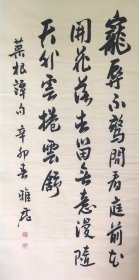 寵辱不驚閒看庭前花
開花落去留无意漫隨
天外雲捲雲舒
菜根譚句 辛卯春